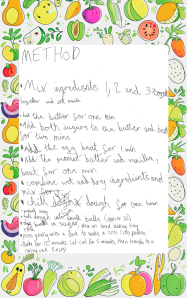 METHOD
• Mix ingredients 1, 2 and 3 together
together and set aside
• beat the butter for one min
• Add both sugars to the butter and beat
for two mins
• Add the egg beat for 1 min
• Add the peanut butter and vanilla,
beat for one min
• combine wet and dry ingredients and
mix
• chill dough for one hour.
• preheat oven
• roll into small balls (makes 30)
• roll in sugar, place on lined baking tray
• press gently with a fork to make a criss cross pattern
• Bake for 10 minutes. Let cool for 5 minutes, then transfer to a
cooling rack. Enjoy!